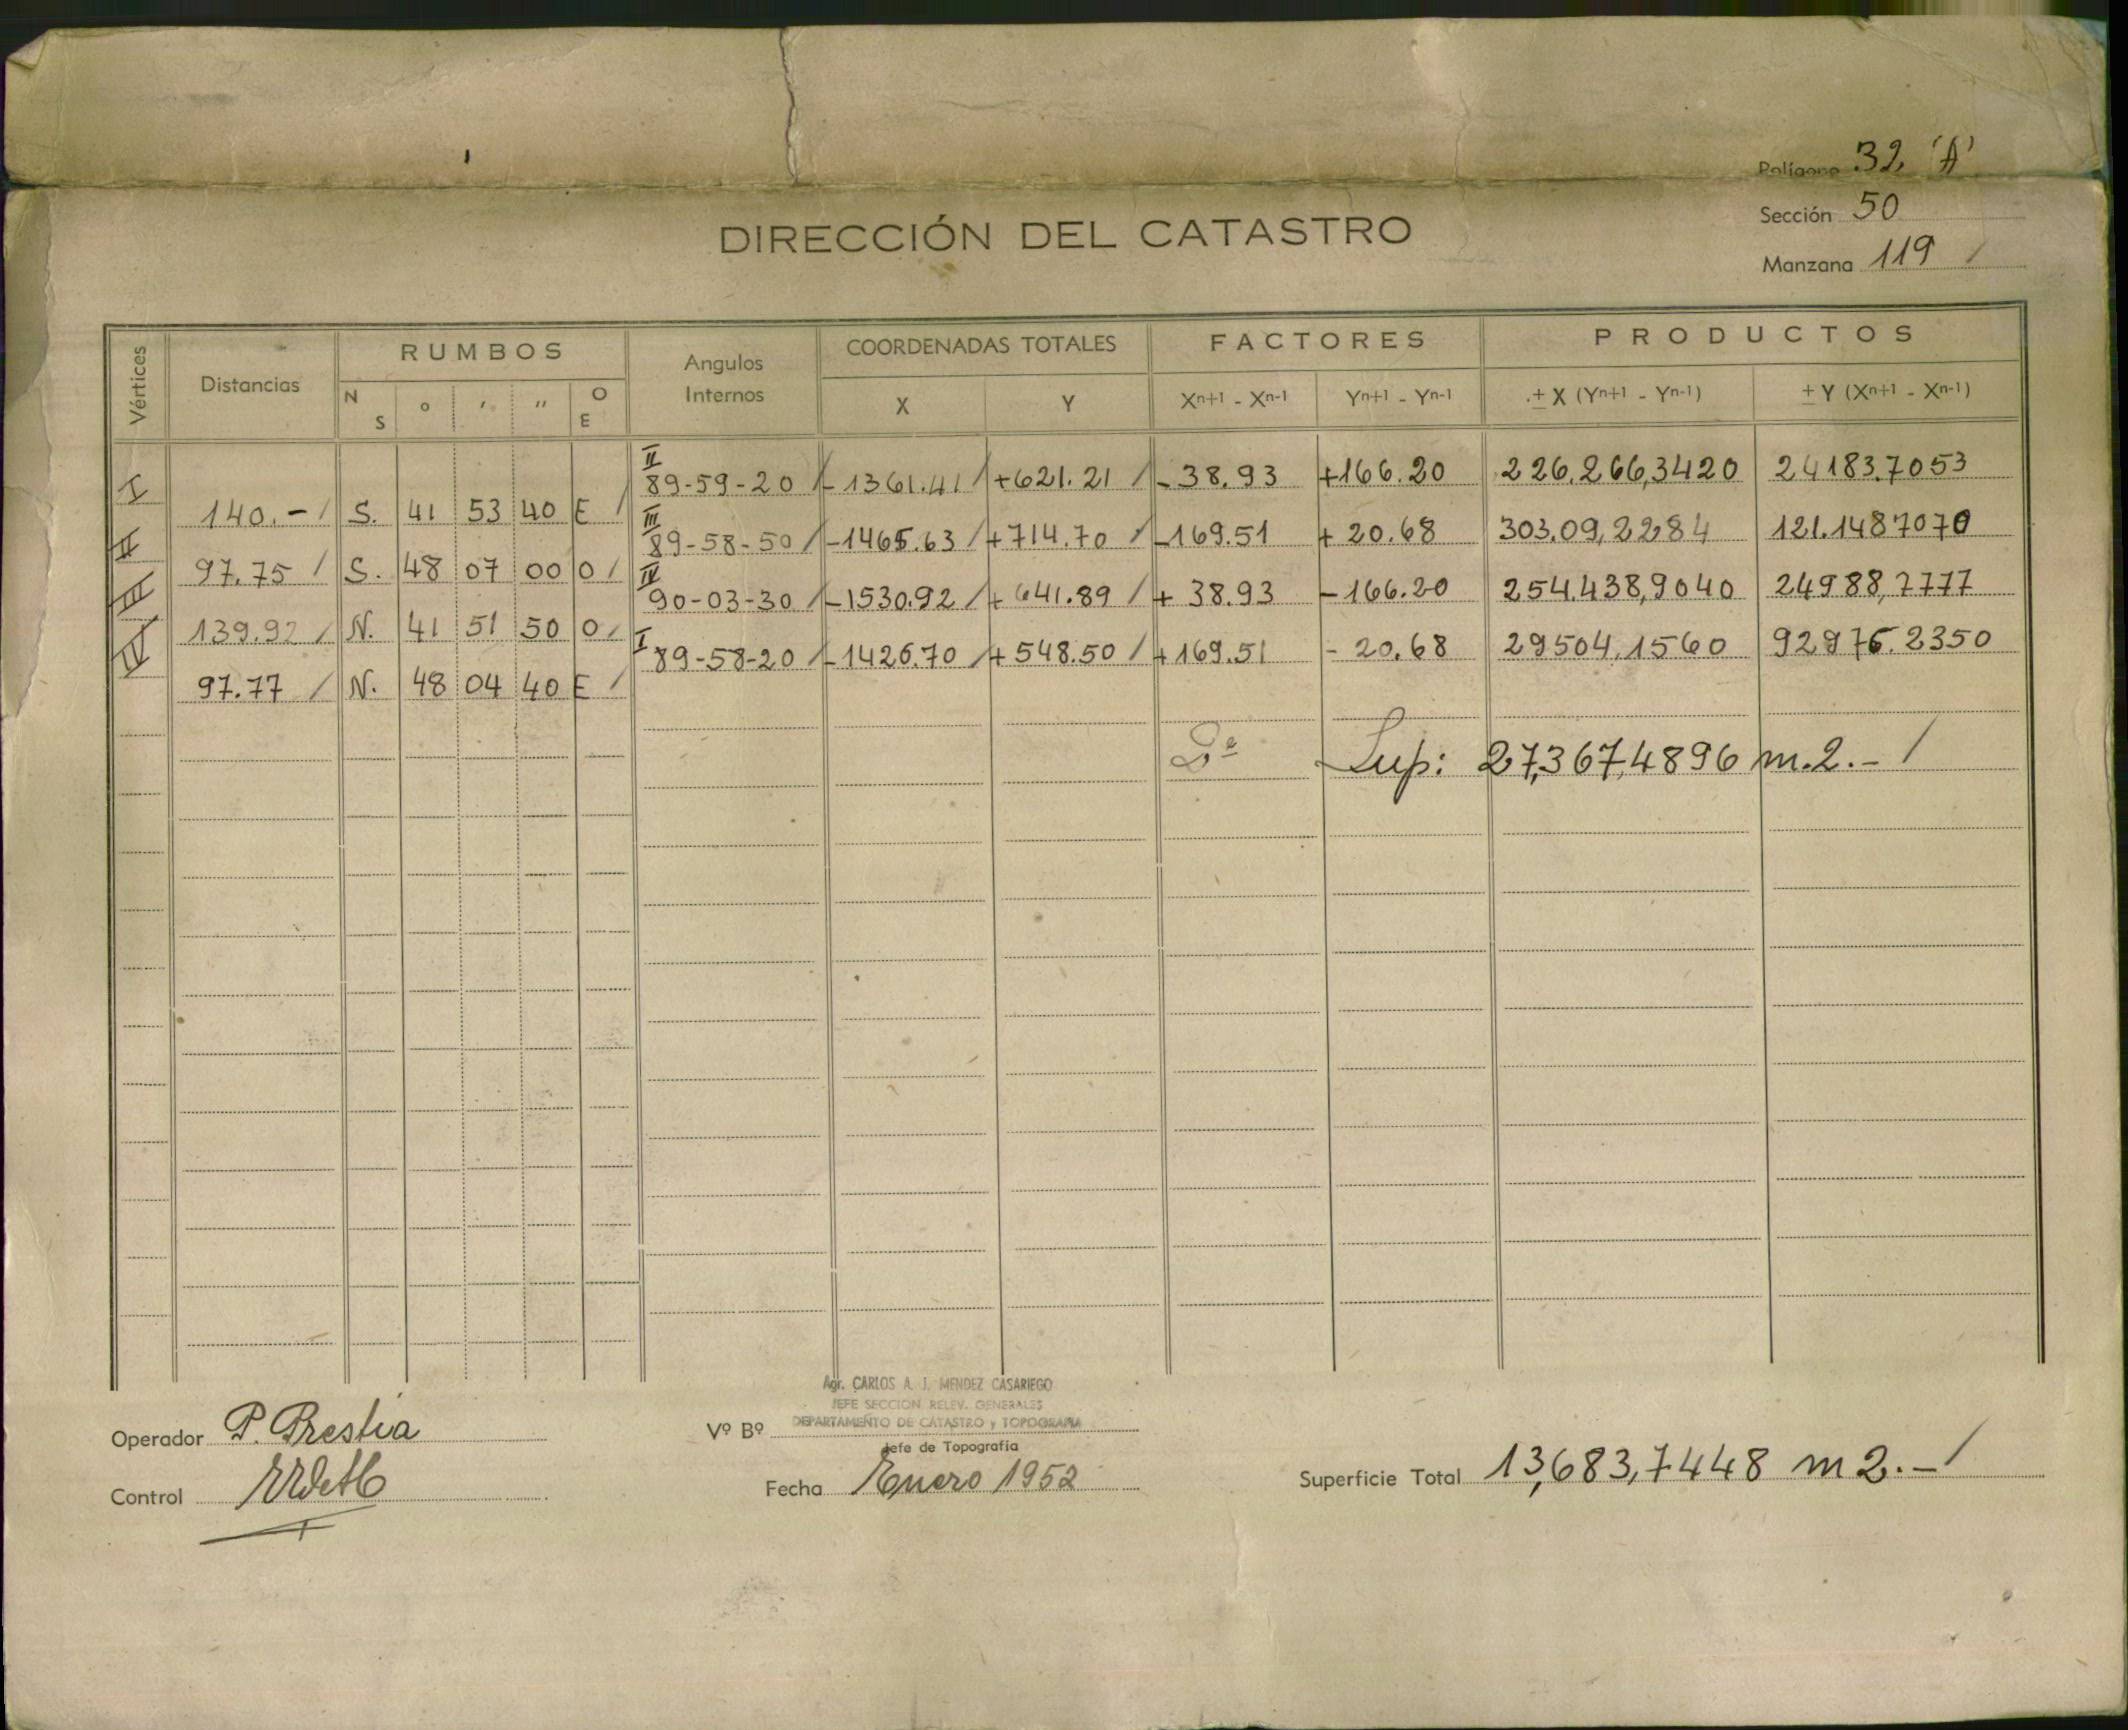 Polígono 32 "A"
Sección 50
DIRECCIÓN DEL CATASTRO
Manzana 119 /
Vértices Distancias RUMBOS Angulos Internos COORDENADAS TOTALES FACTORES PRODUCTOS
N S ° ' '' O E X Y Xⁿ⁺¹ - Xⁿ⁻¹ Yⁿ⁺¹ - Yⁿ⁻¹ ± X (Yⁿ⁺¹ - Yⁿ⁻¹) ± Y (Xⁿ⁺¹ - Xⁿ⁻¹)
I II 89-59-20 / -1361.41 / +621.21 / -38.93 +166.20 226.266,3420 24183.7053
140.- / S. 41 53 40 E /
II III 89-58-50 / -1465.63 / +714.70 / -169.51 + 20.68 303.09,2284 121.1487070
97.75 / S. 48 07 00 O /
III IV 90-03-30 / -1530.92 / + 641.89 / + 38.93 -166.20 254.438,9040 24988,7777
139.92 / N. 41 51 50 O /
IV I 89-58-20 / -1426.70 / + 548.50 / +169.51 - 20.68 29504,1560 92976.2350
97.77 / N. 48 04 40 E /
Sup: 27,367,4896 m.2.- /
Agr. CARLOS A. J. MENDEZ CASARIEGO
JEFE SECCION RELEV. GENERALES
DEPARTAMENTO DE CATASTRO y TOPOGRAFIA
Operador P. Prestia
Vº Bº
Jefe de Topografía
Control
Fecha Enero 1952
Superficie Total 13,683,7448 m2.- /